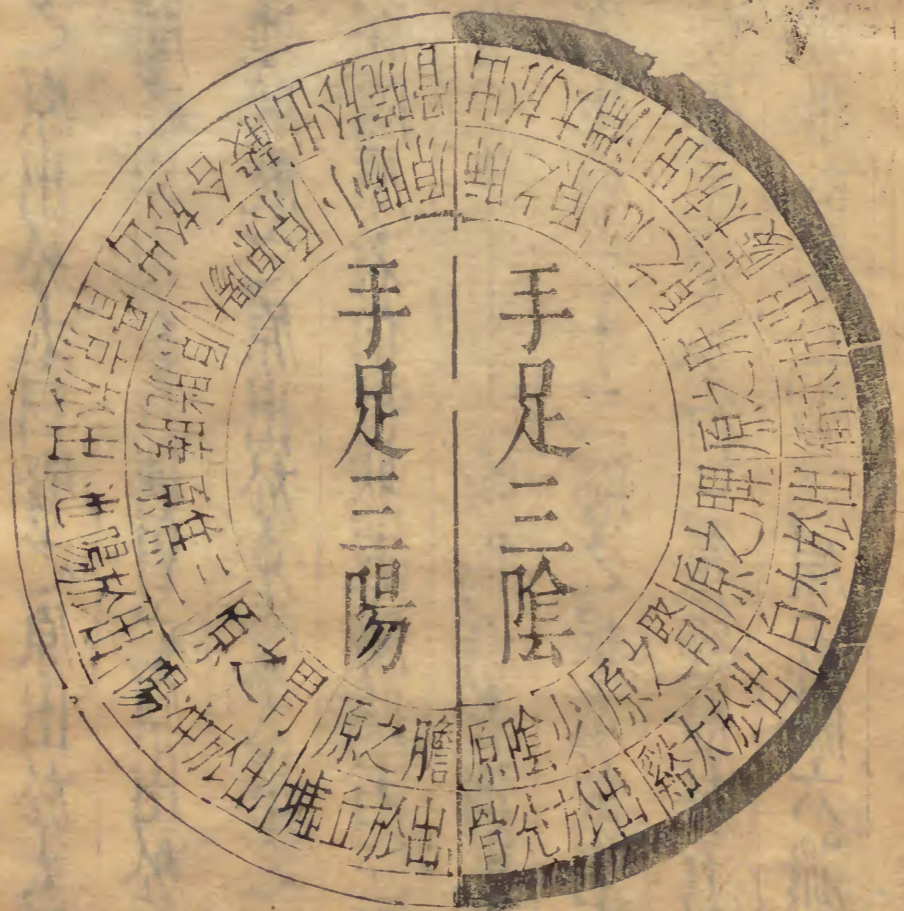 手足三陰
手足三陽
肺之原
出於太淵
心之原
出於太陵
肝之原
出於太衝
脾之原
出於太白
腎之原
出於太谿
少陰原
出於兌骨
膽之原
出於丘墟
胃之原
出於冲陽
三焦原
出於陽池
膀胱原
出於京骨
大腸原
出於合穀
小腸原
出於腕骨